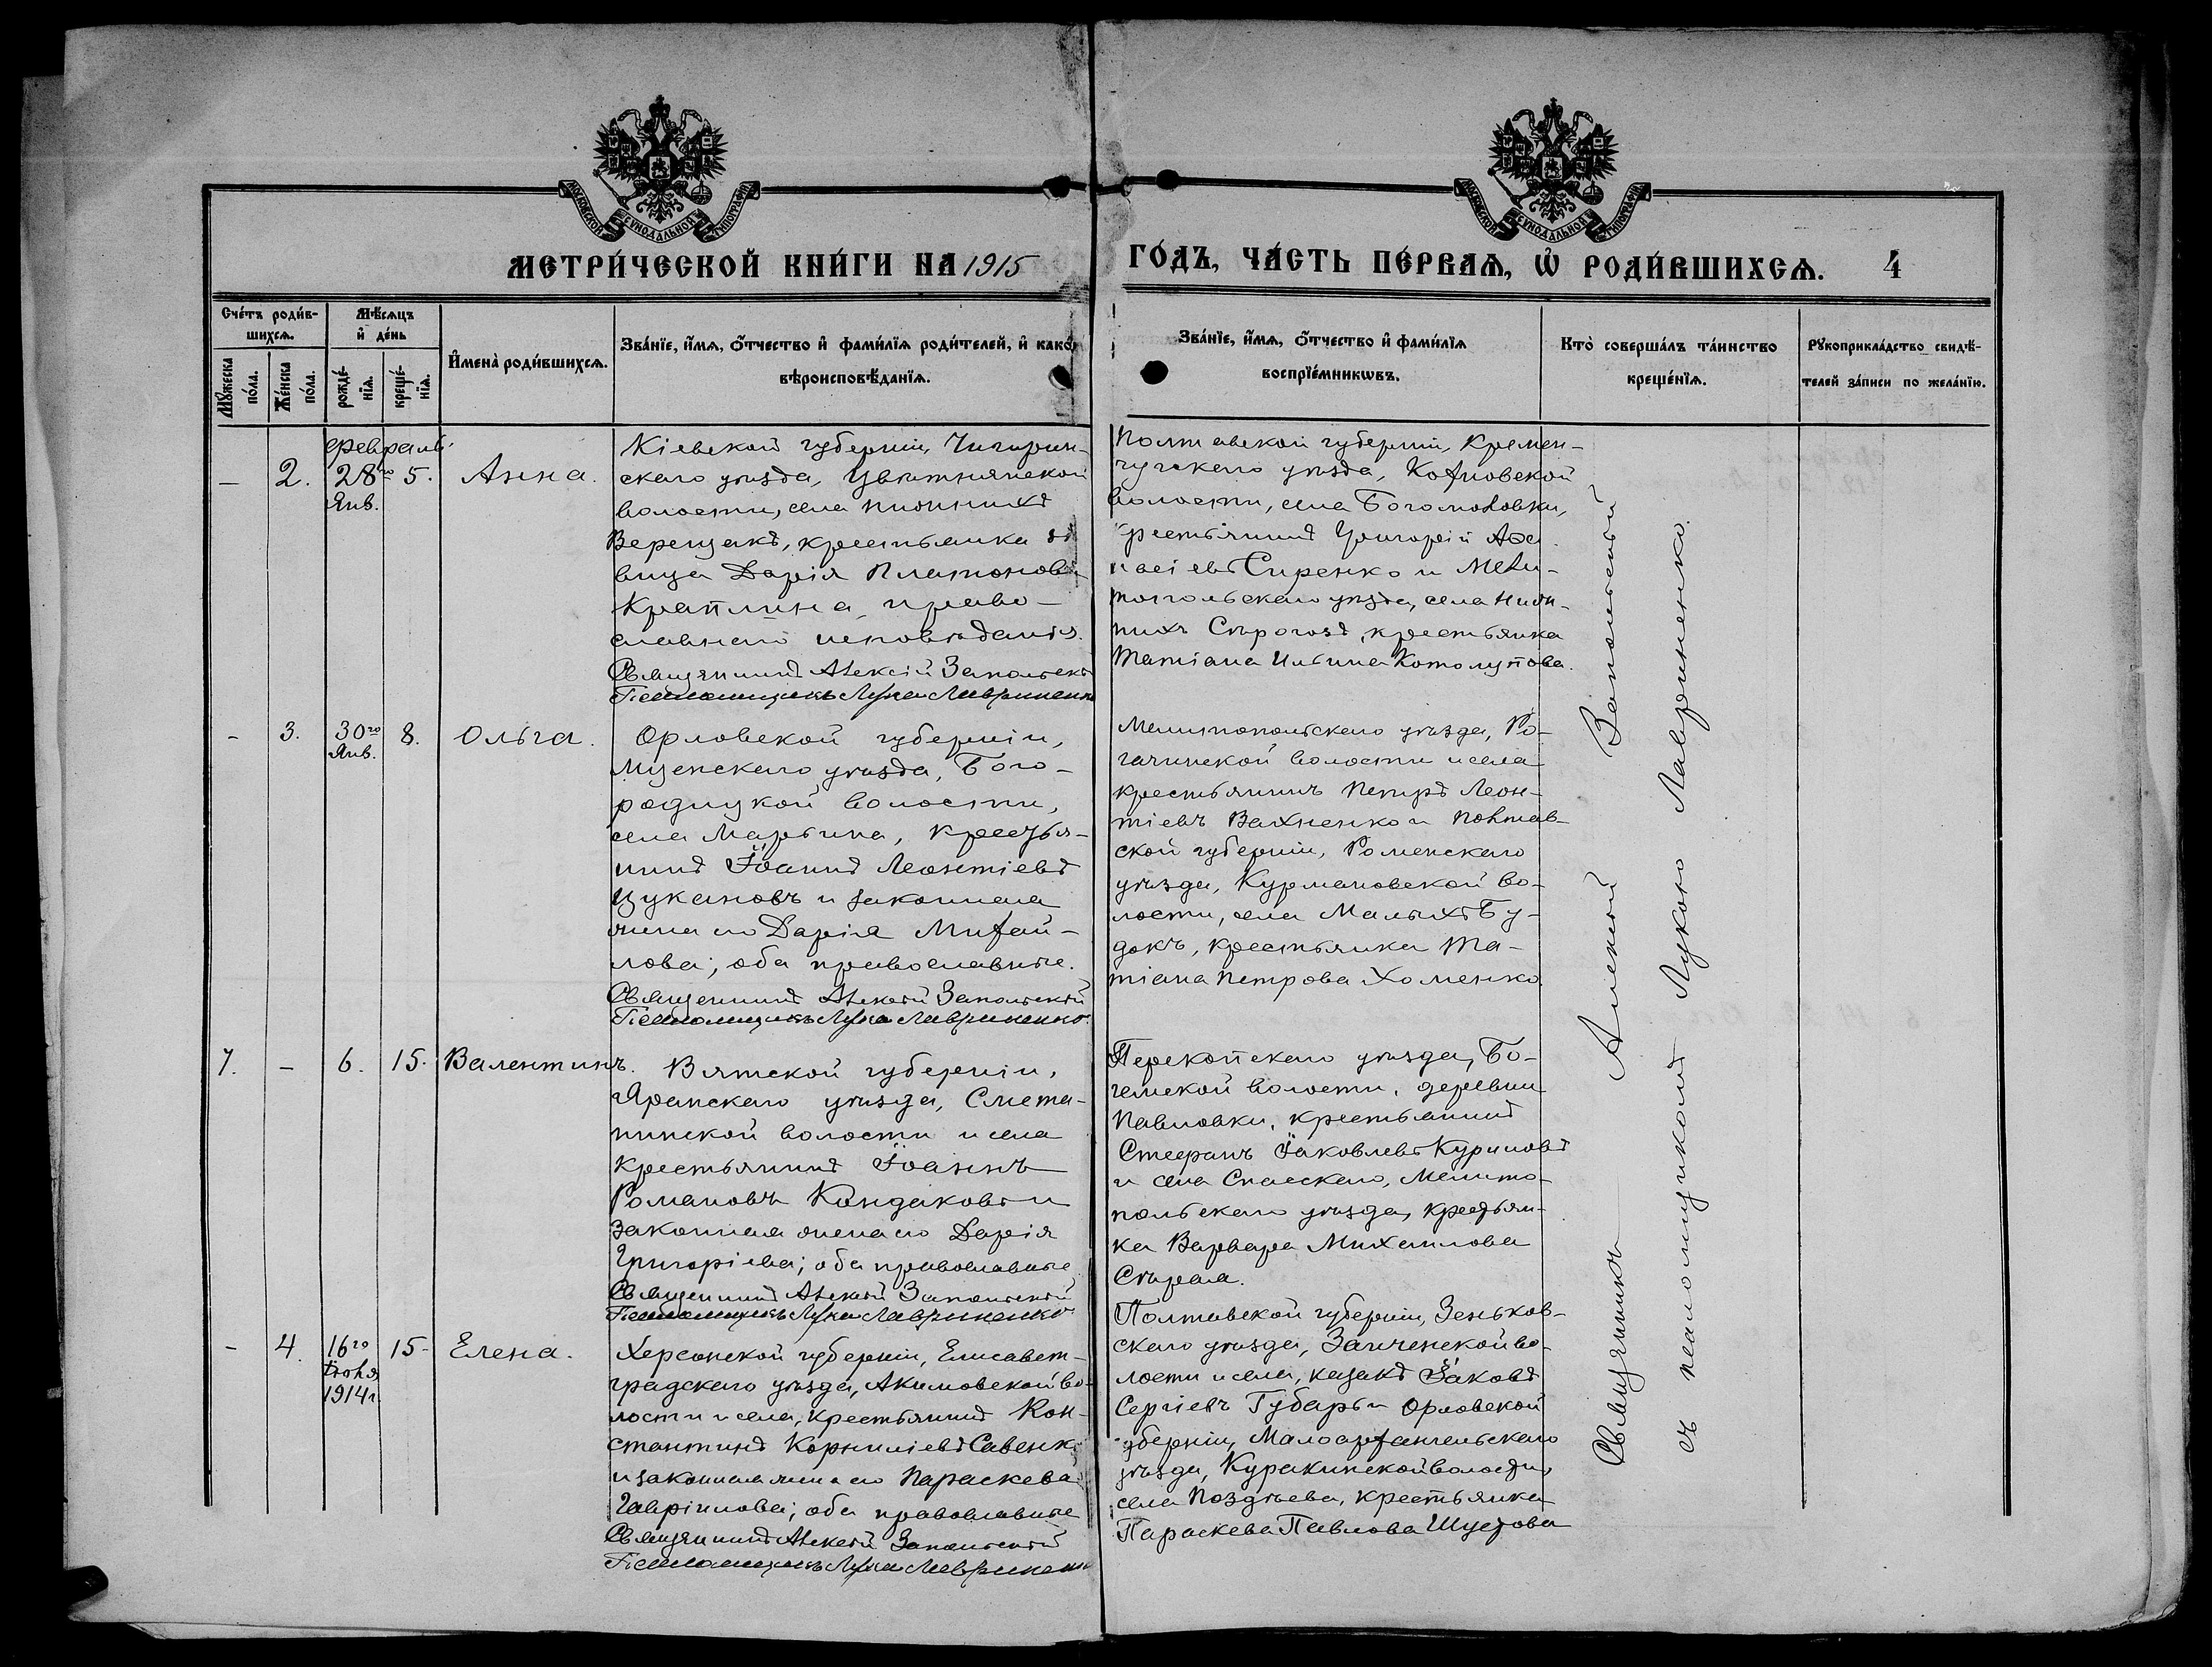 МЕТРИ́ЧЕСКОЙ КНИ́ГИ НА 1915
ГО́ДЪ, ЧА́СТЬ ПЕ́РВАѦ, Ѽ РОДИ́ВШИХСѦ. 4
Сче́тъ роди́в-
шихсѧ.
Мѣ́сѧцъ
и҆ де́нь
Мꙋ́жеска
по́ла.
Же́нска
по́ла.
рожде́-
нїѧ.
креще́-
нїѧ.
И҆мена̀ роди́вшихсѧ.
Зва́нїе, и҆́мѧ, ѻ҆́тчество и҆ фами́лїѧ роди́телей, и҆ како́-
вѣроисповѣ́данїѧ.
Зва́нїе, и҆́мѧ, ѻ҆́тчество и҆ фами́лїѧ
воспрїе́мникѡвъ.
Кто̀ соверша́лъ та́инство
креще́нїѧ.
Рꙋкоприкла́дство свидѣ́-
телей за́писи по жела́нїю.
Февраль
– 2. 28го 5. Анна.
Янв.
Кіевской губерніи, Чигирин-
скаго уѣзда, Цвѣтнянской
волости, села Нижнихъ
Верещакъ, крестьянка дѣ
вица Дарія Платонова
Крапліна, право-
славнаго исповѣданія.
Священникъ Алексій Запольскі
Псаломщикъ Лука Лавриненко
Полтавской губерніи, Кремен-
чугскаго уѣзда,
волости, села Богомоловки,
крестьянинъ Григорій Аѳа-
насіевъ Сиренко и Мели-
топольскаго уѣзда, села Ниж-
нихъ Сѣрогозъ, крестьянка
Татіана Ильина Котолупова.
– 3. 30го 8. Ольга.
Янв.
Орловской губерніи,
Мценскаго уѣзда, Бого-
родицкой волости,
села Марьина, крестья-
нинъ Іоаннъ Леонтіевъ
Цукановъ и законная
жена его Дарія Михай-
лова; оба православные.
Священникъ Алексій Запольскій
Псаломщикъ Лука Лавриненко.
Мелитопольскаго уѣзда, Ро-
гачинской волости и села
крестьянинъ Петръ Леон-
тіевъ Вахненко и Полтав-
ской губерніи, Роменскаго
уѣзда, Курмановской во-
лости, села Малыхъ Бу-
докъ, крестьянка Та-
тіана Петрова Хоменко.
7. – 6. 15. Валентинъ.
Вятской губерніи,
Яранскаго уѣзда, Смета-
нинской волости и села
крестьянинъ Іоаннъ
Романовъ Кандаковъ и
законная жена его Дарія
Григоріева; оба православные
Священникъ Алексій Запольскій
Псаломщикъ Лука Лавриненко
Перекопскаго уѣзда, Бо-
гемской волости, деревни
Павловки, крестьянинъ
Стефанъ Іаковлевъ Куриновъ
и села Спасскаго, Мелито-
польскаго уѣзда, крестьян-
ка Варвара Михаилова
Сѣрая.
– 4. 16го 15. Елена.
Іюня
1914г.
Херсонской губерніи, Елисавет-
градскаго уѣзда, Акимовской во-
лости и села, крестьянинъ Кон-
стантинъ Корниліевъ Савенко
и законная жена его Параскева
Гавріилова; оба православные
Священникъ Алексій Запольскій
Псаломщикъ Лука Лавриненко
Полтавской губерніи, Зеньков-
скаго уѣзда, во-
лости и села, казакъ Іаковъ
Сергіевъ Губарь и Орловской
губерніи, Малоархангельскаго
уѣзда, Куракинской волости,
села Поздѣева, крестьянка
Параскева Павлова Шустова
Священникъ Алексій Запольскій
съ псаломщикомъ Лукою Лавриненко.